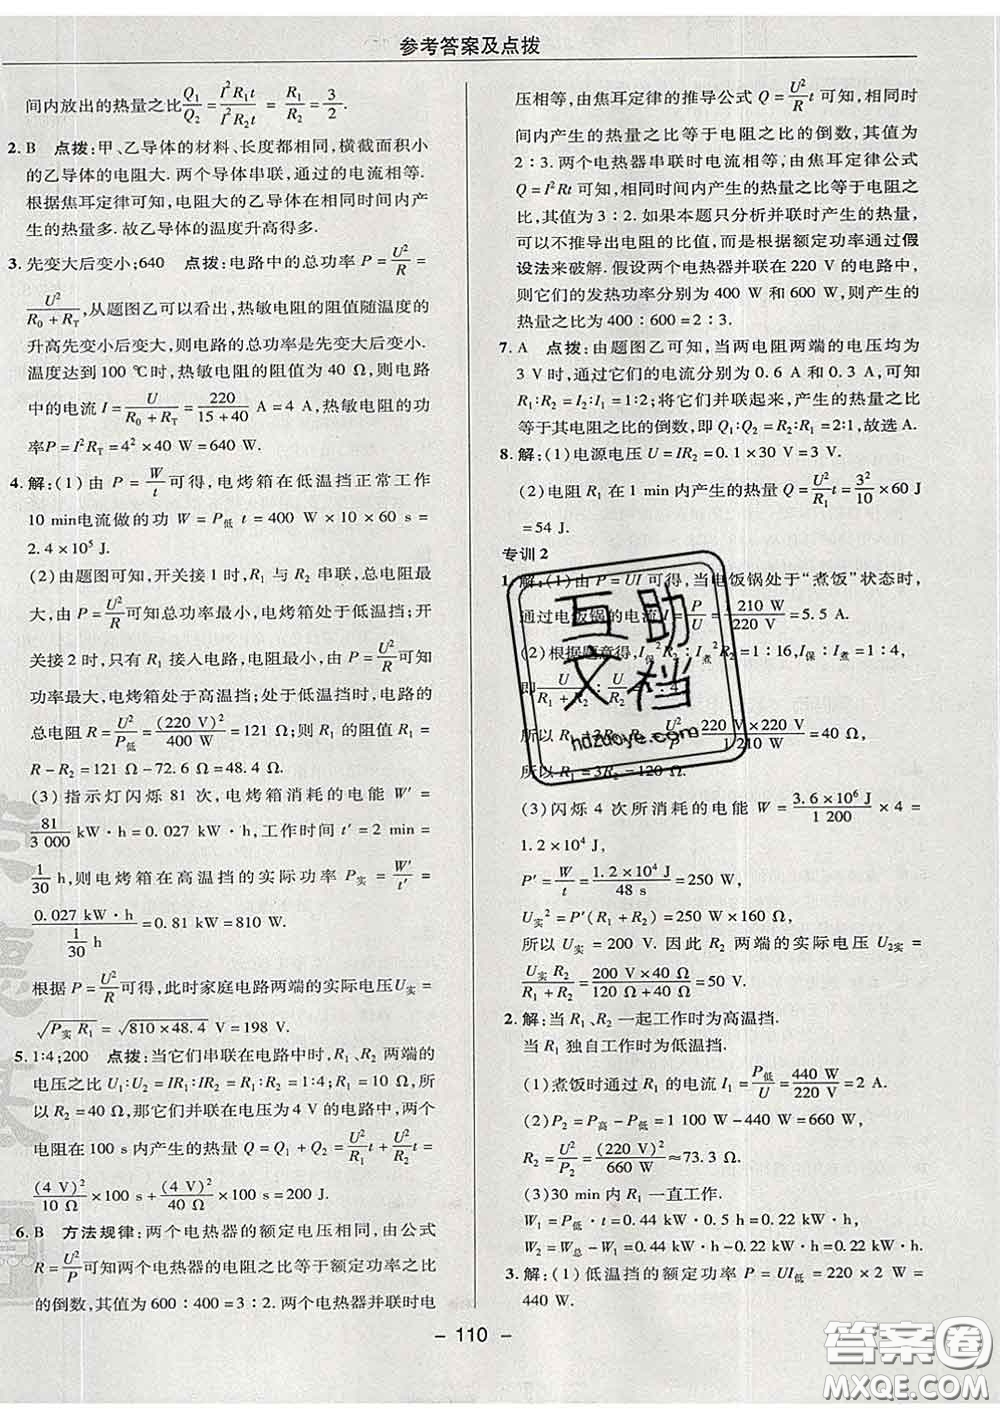 参考答案及点拨
间内放出的热量之比Q₁/Q₂=I²R₁t/I²R₂t=R₁/R₂=3/2.
2. B 点拨:甲、乙导体的材料、长度都相同,横截面积小
的乙导体的电阻大. 两个导体串联,通过的电流相等.
根据焦耳定律可知,电阻大的乙导体在相同时间内产
生的热量多. 故乙导体的温度升高得多.
3. 先变大后变小;640 点拨:电路中的总功率 P=U²/R=
U²/(R₀+R_T),从题图乙可以看出,热敏电阻的阻值随温度的
升高先变小后变大,则电路的总功率是先变大后变小.
温度达到100 ℃时,热敏电阻的阻值为 40 Ω,则电路
中的电流 I=U/(R₀+R_T)=220/(15+40) A=4 A,热敏电阻的功
率P=I²R_T=4²×40 W=640 W.
4. 解:(1)由 P=W/t 可得,电烤箱在低温挡正常工作
10 min电流做的功 W=P低 t=400 W×10×60 s=
2.4×10⁵ J.
(2)由题图可知,开关接1时,R₁ 与 R₂ 串联,总电阻最
大,由 P=U²/R可知总功率最小,电烤箱处于低温挡;开
关接2时,只有 R₁ 接入电路,电阻最小,由 P=U²/R可知
功率最大,电烤箱处于高温挡;处于低温挡时,电路的
总电阻 R=U²/P低=(220 V)²/400 W=121 Ω;则 R₁ 的阻值 R₁=
R-R₂=121 Ω-72.6 Ω=48.4 Ω.
(3)指示灯闪烁 81 次,电烤箱消耗的电能 W′=
81/3 000 kW·h=0.027 kW·h,工作时间 t′=2 min=
1/30 h,则电烤箱在高温挡的实际功率 P实=W′/t′=
0.027 kW·h/(1/30 h)=0.81 kW=810 W.
根据 P=U²/R可得,此时家庭电路两端的实际电压U实=
√(P实 R₁)=√(810×48.4) V=198 V.
5. 1:4;200 点拨:当它们串联在电路中时,R₁、R₂ 两端的
电压之比 U₁:U₂=IR₁:IR₂=R₁:R₂=1:4;R₁=10 Ω,所
以 R₂=40 Ω,那它们并联在电压为 4 V 的电路中,两个
电阻在 100 s 内产生的热量 Q=Q₁+Q₂=U²/R₁ t+U²/R₂ t=
(4 V)²/10 Ω×100 s+(4 V)²/40 Ω×100 s=200 J.
6. B 方法规律:两个电热器的额定电压相同,由公式
R=U²/P可知两个电热器的电阻之比等于额定功率之比
的倒数,其值为 600∶400=3∶2. 两个电热器并联时电
压相等,由焦耳定律的推导公式 Q=U²/R t 可知,相同时
间内产生的热量之比等于电阻之比的倒数,其值为
2∶3. 两个电热器串联时电流相等,由焦耳定律公式
Q=I²Rt 可知,相同时间内产生的热量之比等于电阻之
比,其值为 3∶2. 如果本题只分析并联时产生的热量,
可以不推导出电阻的比值,而是根据额定功率通过假
设法来破解. 假设两个电热器并联在 220 V 的电路中,
则它们的发热功率分别为 400 W 和 600 W,则产生的
热量之比为 400∶600=2∶3.
7. A 点拨:由题图乙可知,当两电阻两端的电压均为
3 V 时,通过它们的电流分别为 0.6 A 和 0.3 A,可知
R₁:R₂=I₂:I₁=1:2;将它们并联起来,产生的热量之比
等于其电阻之比的倒数,即 Q₁:Q₂=R₂:R₁=2:1,故选 A.
8. 解:(1)电源电压 U=IR₂=0.1×30 V=3 V.
(2)电阻 R₁ 在 1 min 内产生的热量 Q=U²/R₁ t=3²/10×60 J
=54 J.
专训 2
1. 解:(1)由 P=UI 可得,当电饭锅处于“煮饭”状态时,
通过电饭锅的电流 I=P/U=1 210 W/220 V=5.5 A.
(2)根据题意得,I保²R₂∶I煮²R₂=1∶16,I保∶I煮=1∶4,
即U/(R₁+R₂)∶U/R₂=1∶4,
所以 R₁=3R₂. R₂=U²/P=220 V×220 V/1 210 W=40 Ω,
所以 R₁=3R₂=120 Ω.
(3)闪烁 4 次所消耗的电能 W=3.6×10⁶ J/1 200×4=
1.2×10⁴ J,
P′=W/t=1.2×10⁴ J/48 s=250 W,
U实²=P′(R₁+R₂)=250 W×160 Ω,
所以 U实=200 V. 因此 R₂ 两端的实际电压 U₂实=
U实 R₂/(R₁+R₂)=200 V×40 Ω/(120 Ω+40 Ω)=50 V.
2. 解:当 R₁、R₂ 一起工作时为高温挡.
当 R₁ 独自工作时为低温挡.
(1)煮饭时通过 R₁ 的电流 I₁=P低/U=440 W/220 V=2 A.
(2)P₂=P高-P低=1 100 W-440 W=660 W,
R₂=U²/P₂=(220 V)²/660 W≈73.3 Ω.
(3)30 min 内 R₁ 一直工作.
W₁=P低·t=0.44 kW×0.5 h=0.22 kW·h,
W₂=W总-W₁=0.44 kW·h-0.22 kW·h=0.22 kW·h.
3. 解:(1)低温挡的额定功率 P=UI低=220×2 W=
440 W.
- 110 -
互助
文档
hdzuoye.com
答案圈
MXQE.COM